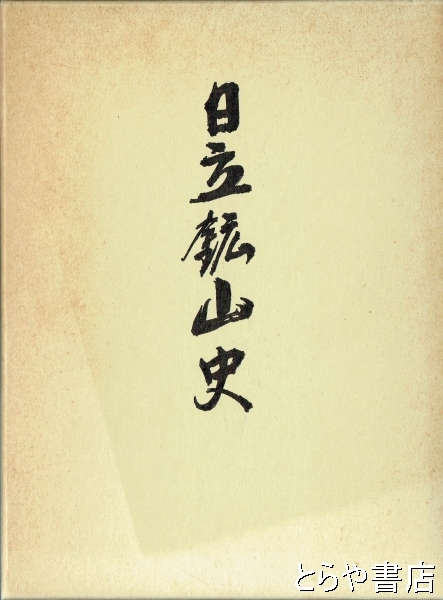 日立鉱山史
とらや書店